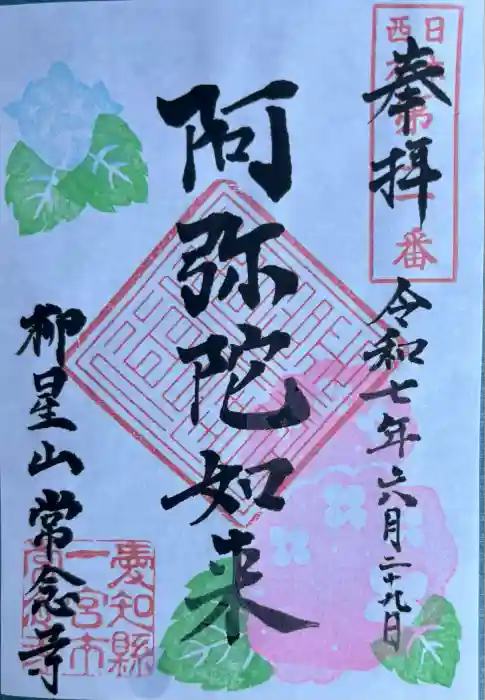 奉拝
令和七年六月二十九日
阿弥陀如来
柳星山常念寺
愛知縣
一宮市
常念寺